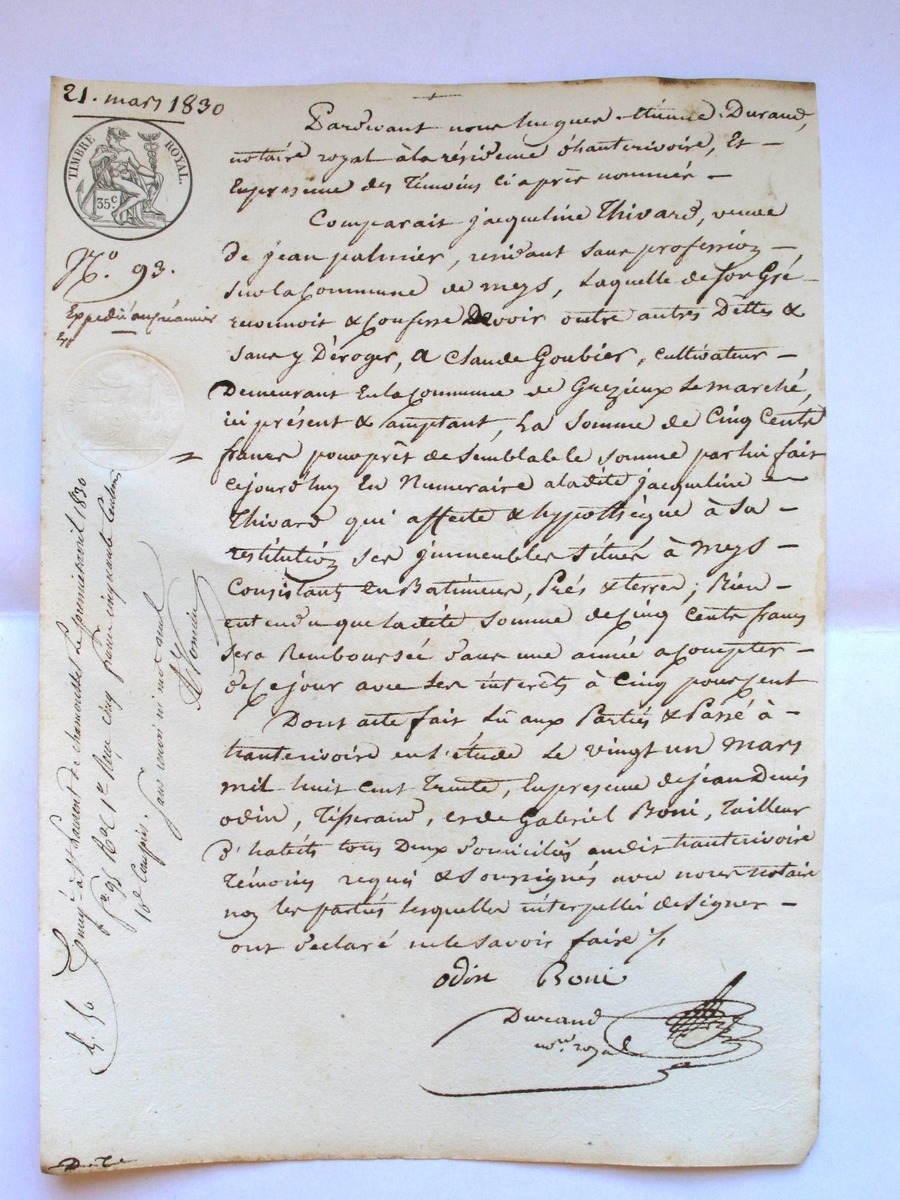 21. mars 1830
TIMBRE ROYAL.
35 c.
N.o 93.
Expédié au créancier
Pardevant nous Jacques-Etienne Durand,
notaire royal à la résidence d'hauterivoire, Et
En presence des Témoins ci après nommés
Comparait jacqueline Thivard, veuve
de jean palmier, residant sans profession
sur la Commune de meys, Laquelle de son Gré
reconnoit & Confesse Devoir outre autres Dettes &
sans y Déroger, a Claude Goubier, Cultivateur
Demeurant En la Commune de Grezieux Le marché,
ici présent & acceptant, La Somme de Cinq Cents
francs pour prêt de semblable somme par lui fait
cejourd'huy En Numeraire a ladite jacqueline
Thivard qui affecte & hypothèque à Sa
restitution ses immeubles situés à Meys
Consistant En Batimens, Prés & terres; Bien
entendu que ladite Somme de Cinq Cents francs
sera Remboursée dans une année a Compter
de ce jour avec les intérêts à Cinq pour Cent
Dont acte fait Lû aux Parties & Passé à
hauterivoire en l'étude Le vingt un mars
mil huit cent Trente, En presence de jean Denis
odin, Tisserand, et de Gabriel Boni, Tailleur
d'habits tous Deux domiciliés audit hauterivoire
Témoins requis & Soussignés avec nous notaire
non les parties lesquelles interpellées de signer
ont déclaré ne le savoir faire ./.
odin Boni
Durand
nore royal
Enregé à St Laurent de chamousset le premier avril 1830
fo 95 Ro C 1re Reçu cinq francs cinquante centimes
10e Compris. sans renvoi ni mot nul
5. 50